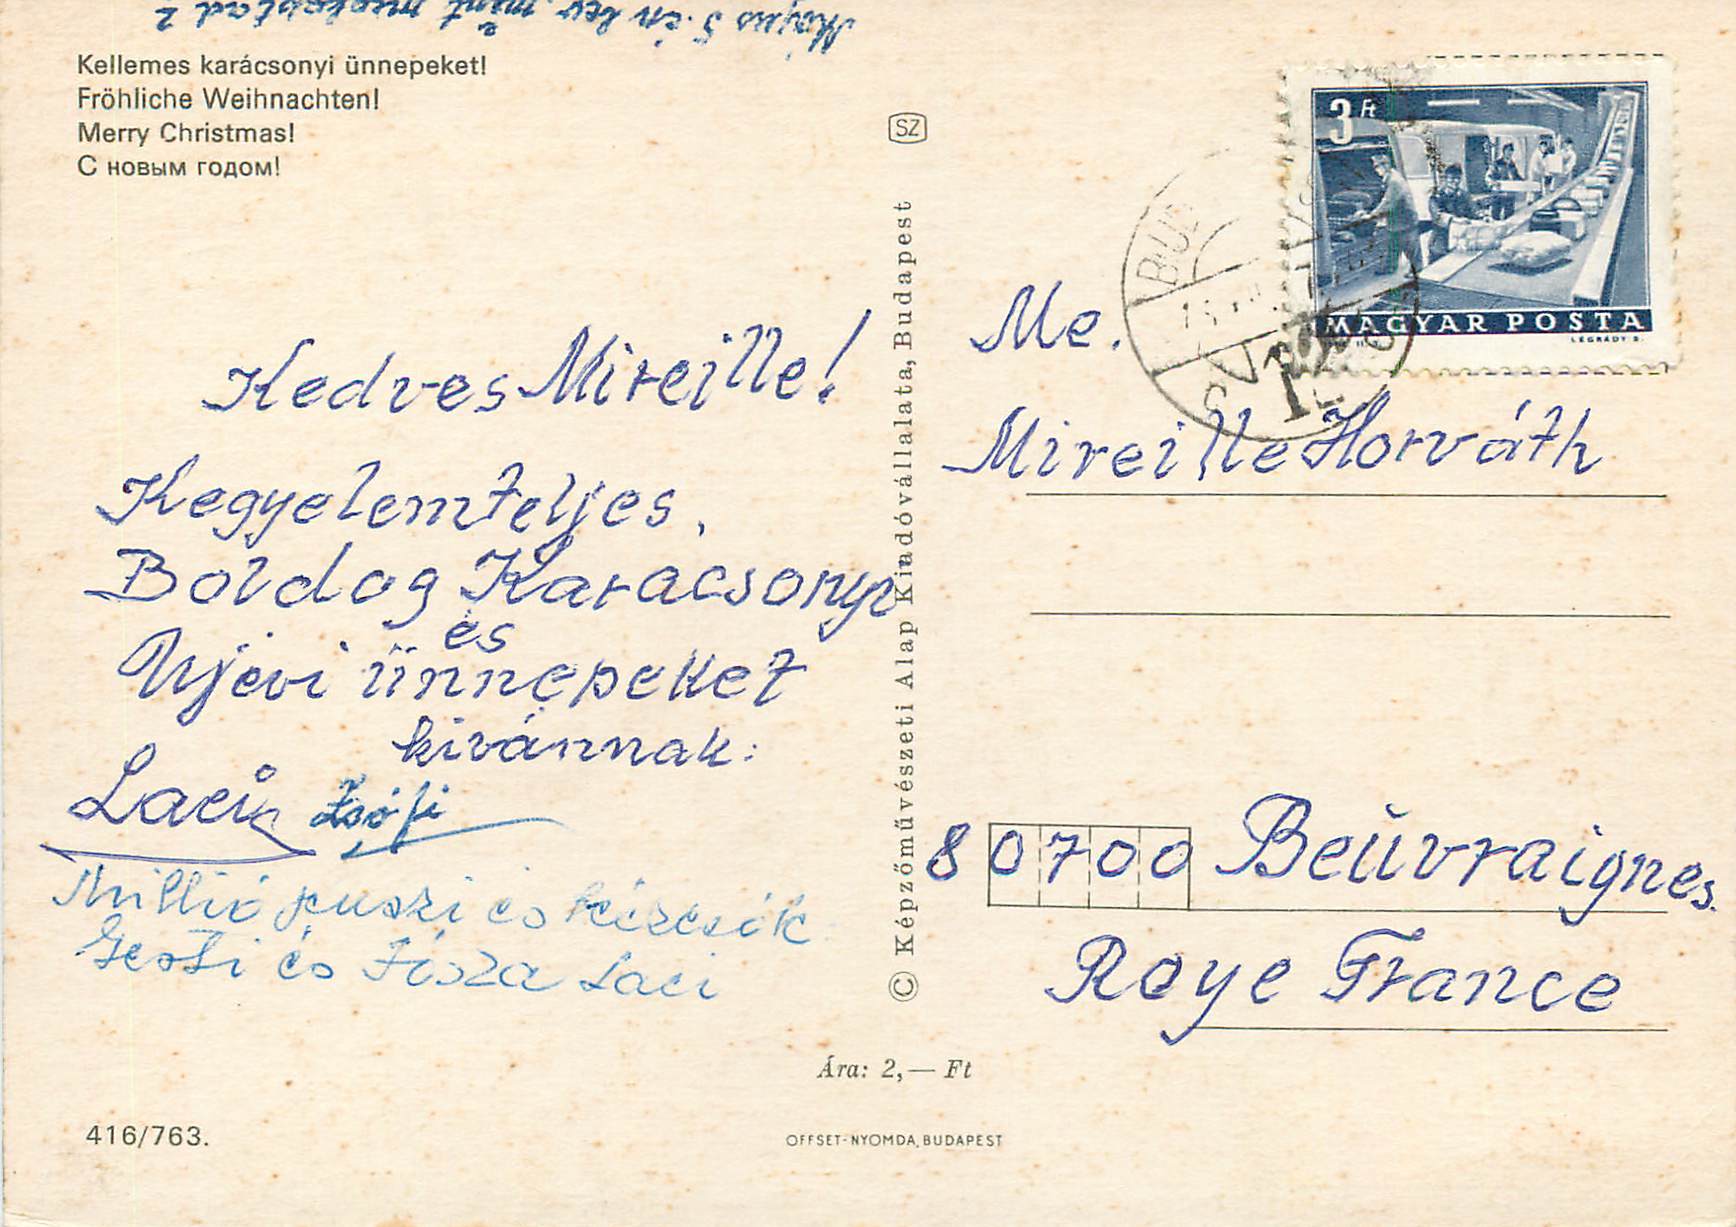 Kellemes karácsonyi ünnepeket!
Fröhliche Weihnachten!
Merry Christmas!
С новым годом!
Kedves Mireille!
Kegyelemteljes,
Boldog Karácsonyi
és
Újévi ünnepeket
kívánnak:
Laci Zsófi
Millió puszi és kézcsók
Gerti és Józsa Laci
Május 5.én lev. ment megkaptad?
SZ
© Képzőművészeti Alap Kiadóvállalata, Budapest
3 Ft
MAGYAR POSTA
LÉGRÁDY S.
BUD
Me.
Mireille Horváth
80700 Beüvraignes.
Roye France
Ára: 2,— Ft
416/763.
OFFSET-NYOMDA, BUDAPEST